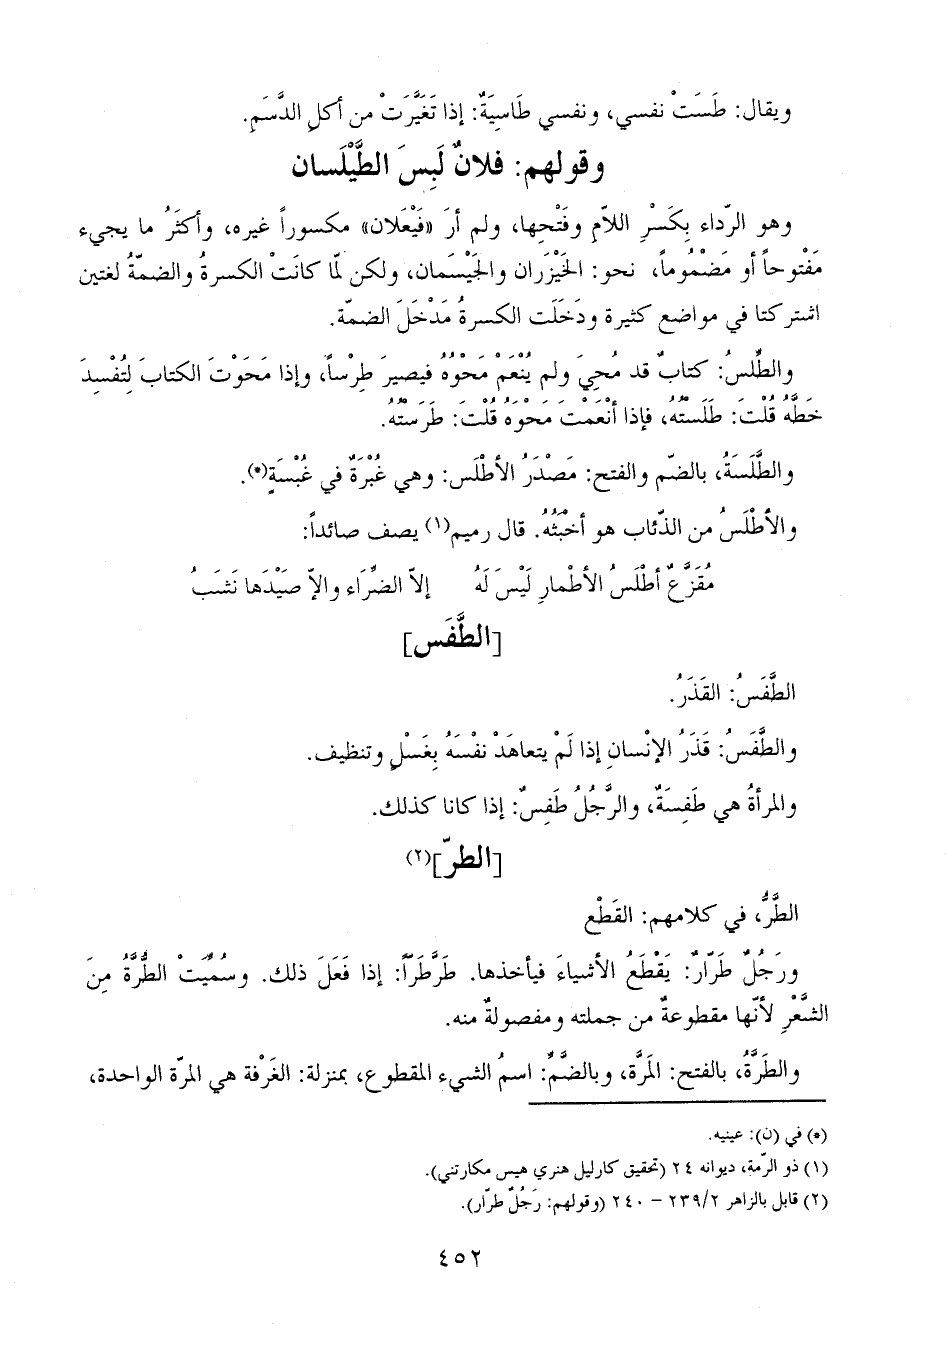 ويقال: طَسَتْ نفسي، ونفسي طَاسِيَةٌ: إذا تَغَيَّرَتْ من أكلِ الدَّسَمِ.
وقولهم: فلانٌ لَبِسَ الطَّيْلَسان
وهو الرّداء بِكَسْرِ اللاّمِ وفَتْحِها، ولم أرَ «فَيْعَلان» مكسوراً غيره، وأكثَرُ ما يجيء
مَفْتوحاً أو مَضْمُوماً، نحو: الخَيْزَران والجَيْسَمان، ولكن لمّا كانَتْ الكسرةُ والضمّةُ لغتين
اشتركتا في مواضع كثيرة ودَخَلَت الكسرةُ مَدْخَلَ الضمّة.
والطِّلسُ: كتابٌ قد مُحِيَ ولم يُنْعَمْ مَحْوُهُ فيصيرَ طِرْساً، وإذا مَحَوْتَ الكتابَ لِتُفْسِدَ
خَطَّهُ قُلْتَ: طَلَسْتُهُ، فإذا أنْعَمْتَ مَحْوَهُ قُلْتَ: طَرَسْتُهُ.
والطُّلَسَةُ، بالضّم والفتح: مَصْدَرُ الأطْلَس: وهي غُبْرَةٌ في غُبْسَةٍ(*).
والأطْلَسُ من الذّئاب هو أخْبَثُهُ. قال رميم(١) يصف صائداً:
مُقَزَّعٌ أطْلَسُ الأطْمارِ لَيْسَ لَهُ إلاّ الضِّرَاء وإلاّ صَيْدَها نَشَبُ
[الطَّفَس]
الطَّفَسُ: القَذَرُ.
والطَّفَسُ: قَذَرُ الإنْسانِ إذا لَمْ يتعاهَدْ نفْسَهُ بِغَسْلٍ وتنظيف.
والمرأةُ هي طَفِسَةٌ، والرَّجُلُ طَفِسٌ: إذا كانا كذلك.
[الطرّ](٢)
الطَّرُّ، في كلامهم: القَطْع
ورَجُلٌ طَرّارٌ: يَقْطَعُ الأشياءَ فيأخذها. طَرَّطَرّاً: إذا فَعَلَ ذلك. وسُمِّيَتْ الطُّرَّةُ مِنَ
الشَّعْرِ لأنّها مقطوعةٌ من جملته ومفصولةٌ منه.
والطَرَّةُ، بالفتح: المَرَّة، وبالضَّمِّ: اسمُ الشيء المقطوع، بمنزلة: الغَرْفة هي المرّة الواحدة،
(*) في (ن): عينيه.
(١) ذو الرّمة، ديوانه ٢٤ (تحقيق كارليل هنري هيس مكارتني).
(٢) قابل بالزاهر ٢٣٩/٢ – ٢٤٠ (وقولهم: رَجُلٌ طرّار).
٤٥٢